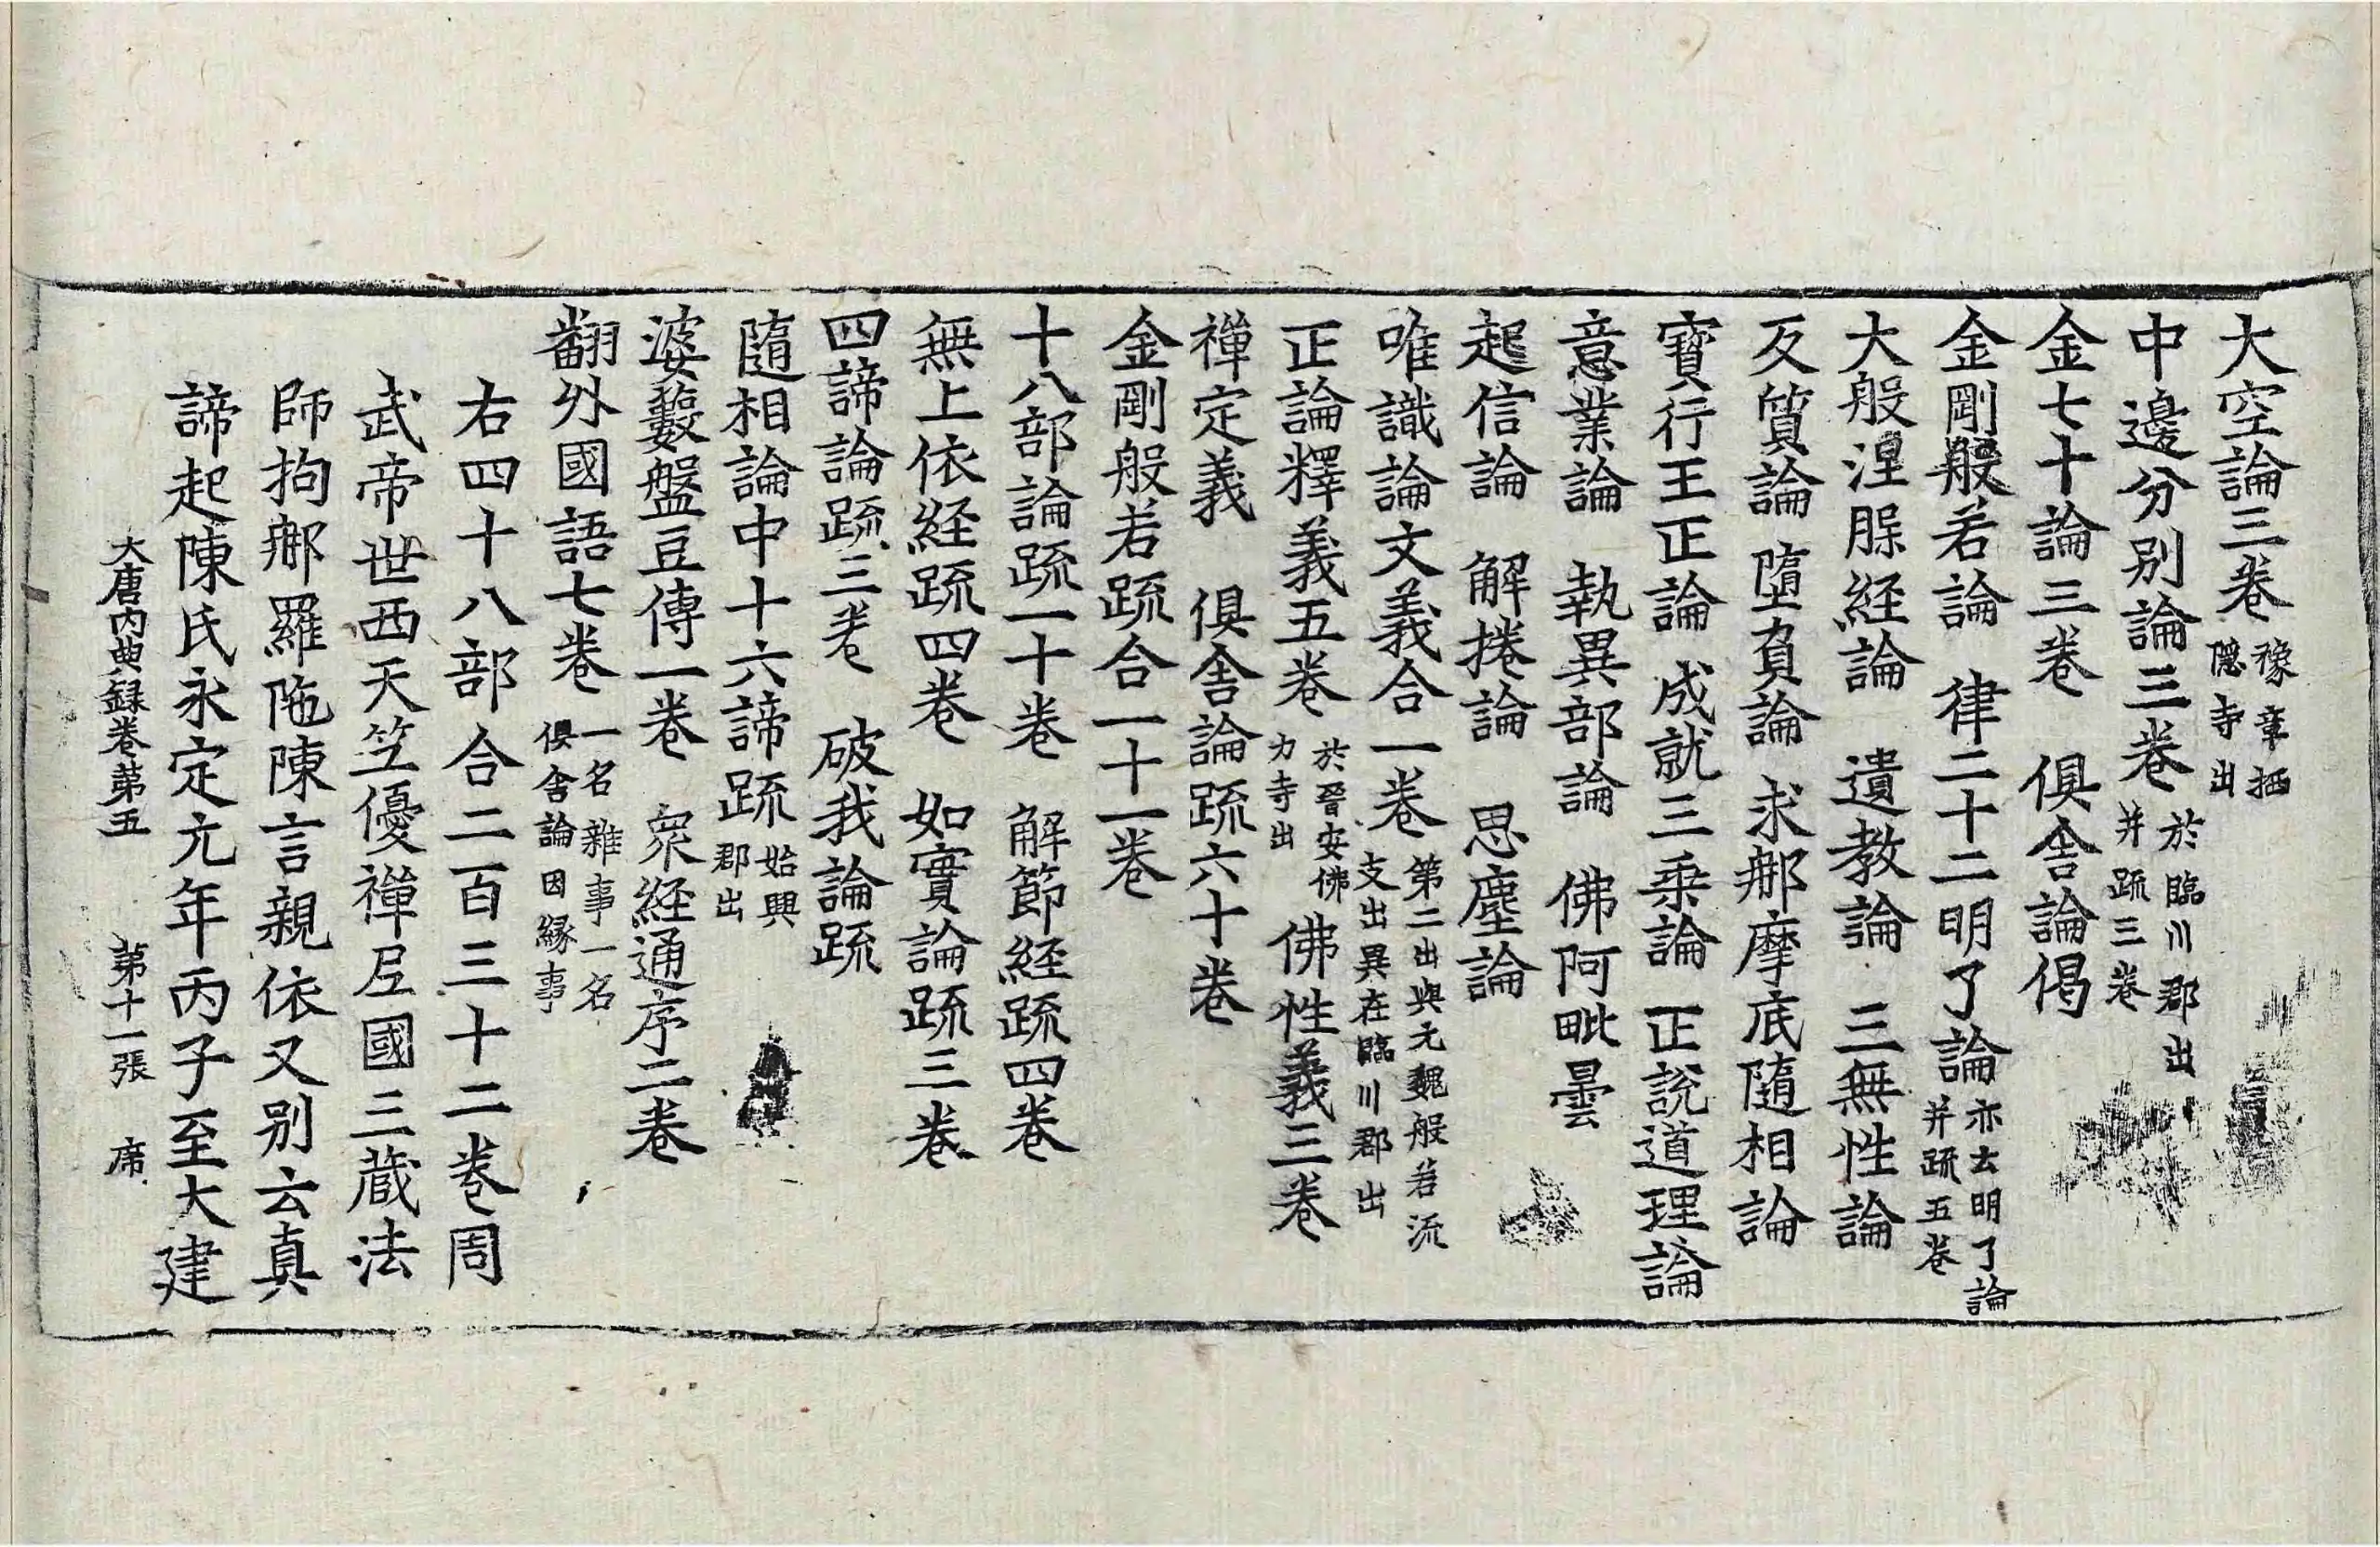 大空論三卷豫章栖隱寺出
中邊分別論三卷於臨川郡出并䟽三卷
金七十論三卷　俱舍論偈
金剛般若論　律二十二明了論亦云明了論并䟽五卷
大般涅脵経論　遺教論　三無性論
反質論　墮負論　求䣕摩底隨相論
寶行王正論　成就三乘論　正說道理論
意業論　執異部論　佛阿毗曇
起信論　解捲論　思塵論
唯識論文義合一卷第二出與元魏般若流支出異在臨川郡出
正論釋義五卷於晉安佛力寺出　佛性義三卷
禪定義　俱舍論䟽六十卷
金剛般若䟽合一十一卷
十八部論䟽一十卷　解節経䟽四卷
無上依経䟽四卷　如實論䟽三卷
四諦論䟽三卷　破我論䟽
隨相論中十六諦䟽始興郡出
婆藪盤豆傳一卷　衆経通序二卷
翻外國語七卷一名雜事一名俱舍論因緣事
右四十八部合二百三十二卷周
武帝世西天竺優禪尼國三藏法
師拘䣕羅陁陳言親依又別云真
諦起陳氏永定元年丙子至大建
大唐內典録卷第五　第十一張　席